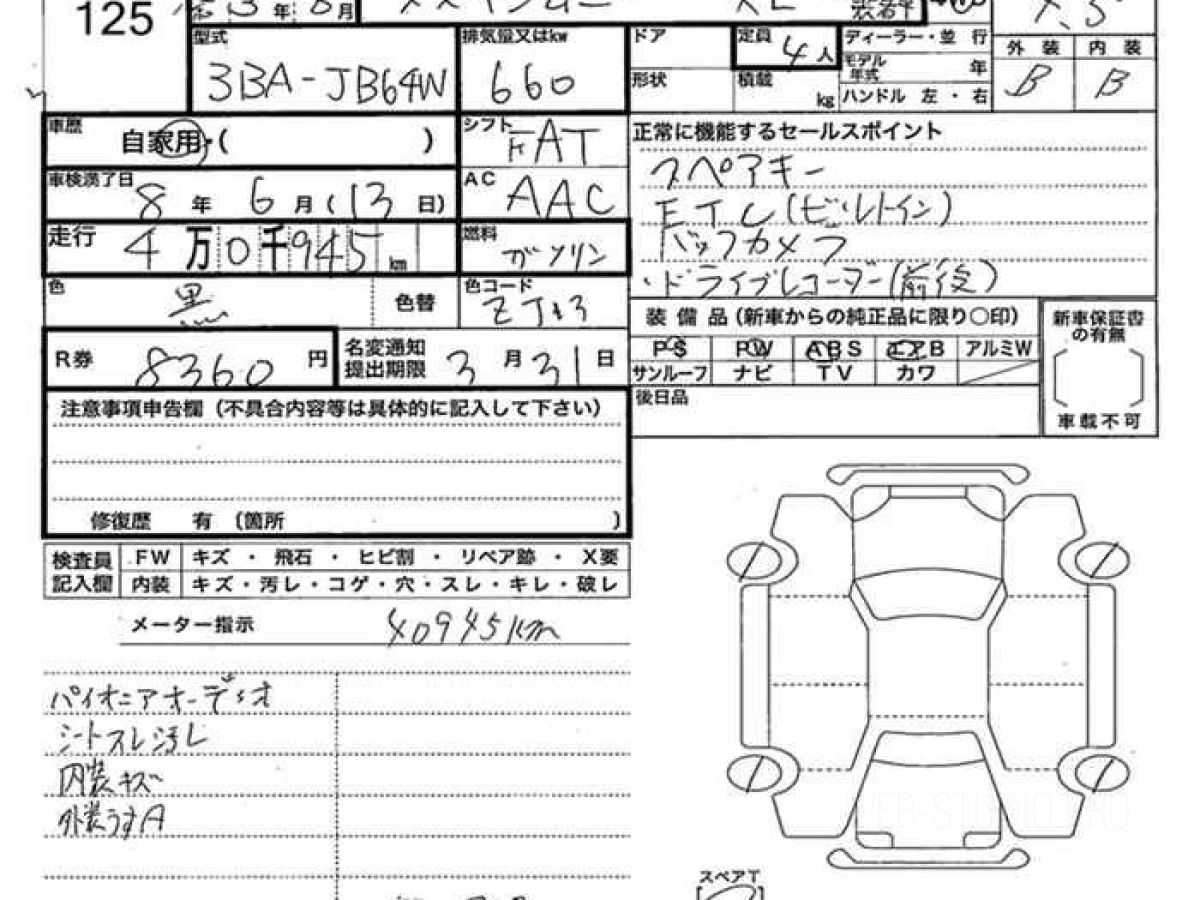 125
3 年 8 月
XL
装着車
型式
排気量又はkw
ドア
定員
4人
ディーラー・並 行
外 装
内 装
3BA-JB64W
660
形状
積載
kg
モデル年式
年
ハンドル 左・右
B
B
車歴
自家用・( )
シフト
FAT
正常に機能するセールスポイント
スペアキー
車検満了日
8 年 6 月 (13 日)
AC
AAC
ETC(ビルトイン)
走行
4万0千945km
燃料
ガソリン
バックカメラ
・ドライブレコーダー(前後)
色
黒
色替
色コード
ZJ3
装備品(新車からの純正品に限り○印)
新車保証書の有無
PS
PW
ABS
エアB
アルミW
サンルーフ
ナビ
TV
カワ
R券
8360 円
名変通知
提出期限
3 月 31 日
後日品
車載不可
注意事項申告欄(不具合内容等は具体的に記入して下さい)
修復歴 有 〔箇所 〕
検査員
記入欄
FW
キズ ・ 飛石 ・ ヒビ割 ・ リペア跡 ・ X要
内装
キズ・汚レ・コゲ・穴・スレ・キレ・破レ
メーター指示
40945km
パイオニアオーディオ
シートスレ汚レ
内装キズ
外装うすA
WEB-STUDIO
スペアT